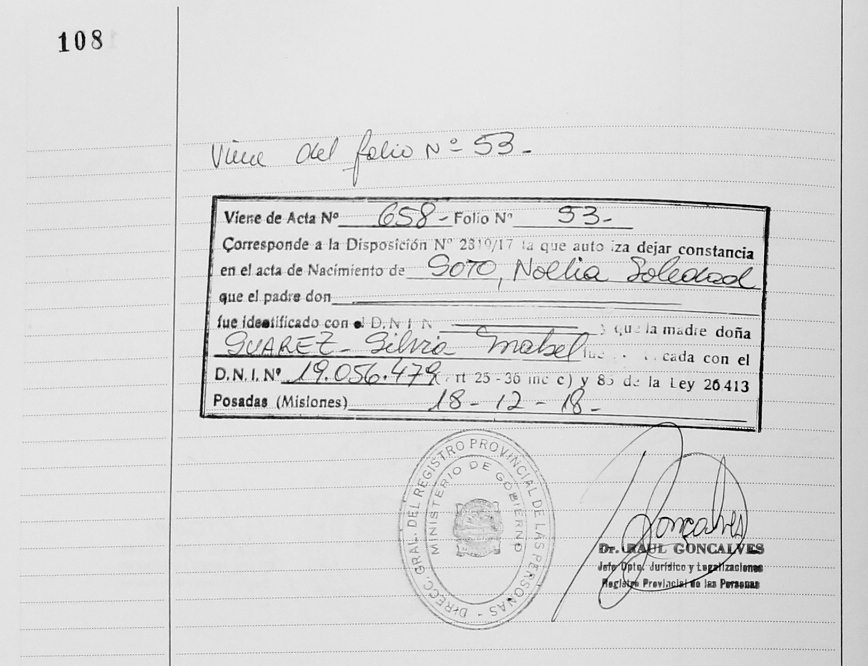 108
Viene del folio Nº 53-
Viene de Acta Nº 658- Folio Nº 53-
Corresponde a la Disposición Nº 2810/17 la que auto iza dejar constancia
en el acta de Nacimiento de SOTO, Noelia Soledad
que el padre don
fue identificado con el D.N.I. N y que la madre doña
SUAREZ- Silvia Mabel fue cada con el
D.N.I. Nº 19.056.479, rt 25-36 inc c) y 85 de la Ley 26413
Posadas (Misiones) 18-12-18-
DIRECC. GRAL. DEL REGISTRO PROVINCIAL DE LAS PERSONAS -
MINISTERIO DE GOBIERNO
Goncalves
Dr. RAUL GONCALVES
Jefe Dpto. Jurídico y Legalizaciones
Registro Provincial de las Personas